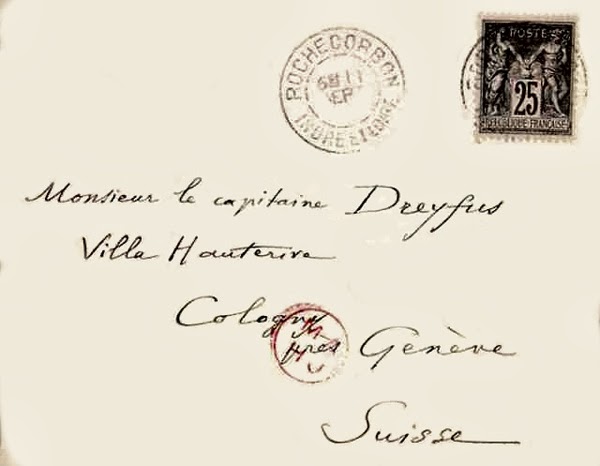 ROCHECORBON
INDRE ET LOIRE
POSTE
25
REPUBLIQUE FRANÇAISE
Monsieur le capitaine Dreyfus
Villa Hauterive
Cologny
près Genève
Suisse